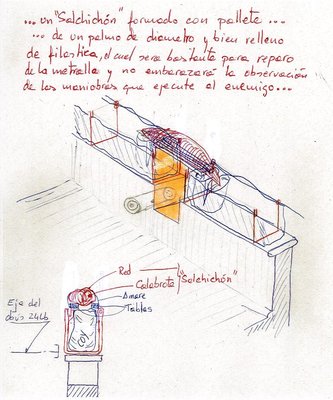 ...un "Salchichón" formado con pallete...
... de un palmo de diametro y bien relleno
de filastica, el cual sera bastante para reparo
de la metralla y no embarazará la observación
de las maniobras que ejecute el enemigo...
Red
Calabrote
"Salchichón"
Amare
Tablas
COY
Eje del
obús 24Lb